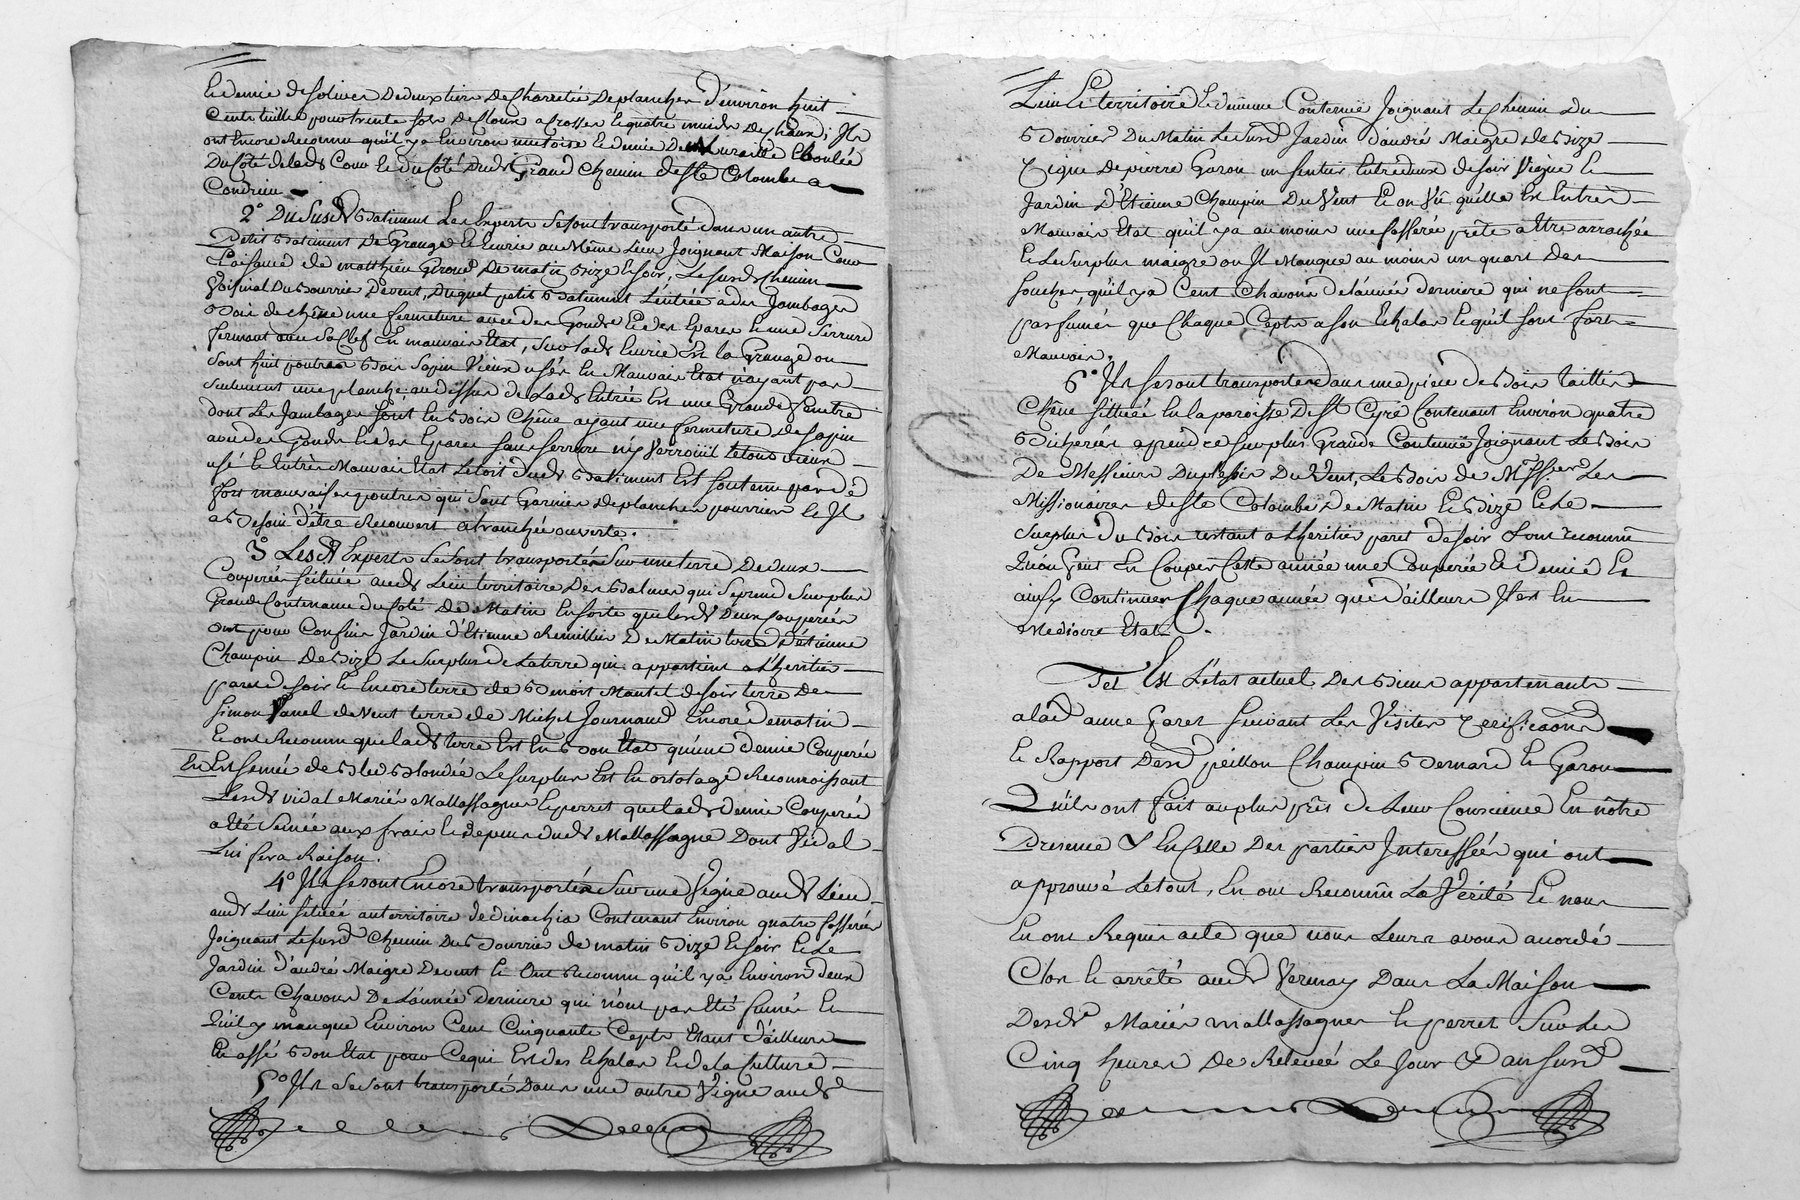 et demie de solives de deux tiers de charretée de planches d'environ huit
cents tuilles pour trente sols de cloux a crosser et quatre muids de chaux, Ils
ont Encore Reconnu qu'il y a Environ une toise et demie de Muraille Eboulée
du Côté de lad. Cour et du Côté dud. Grand Chemin de Ste Colombe a
Condrieu
2° Du Susd. Batiment Les Experts se sont transporté dans un autre
Petit Batiment de Grange et Ecurie au Même Lieu Joignant Maison Cour
et aisance de matthieu Giroud de matin Bize et soir, Le susd. Chemin
Voisinal du Bourrier de vent, Duquel petit Batiment L'entrée a des Jambages
Bois de chêne une fermeture avec des Gonds et des Epares et une Serrure
fermant avec Sa Clef En mauvais Etat, Sur lad. Ecurie Est la Grange ou
sont huit poutres Bois Sapin Vieux usés En Mauvais Etat n'ayant pas
seulement une planche, au dessus de Lad. Entrée Est une Grande fenetre
dont Les Jambages sont En Bois Chêne ayant une fermeture de sapin
avec des Gonds et des Epares sans serrure ny Verrouil Le tout vieux
usé et En très Mauvais Etat Le toit dud. Batiment Est soutenu par de
fort mauvaises poutres qui sont Garnies de planches pourries et Il
a Besoin d'être Recouvert a tranchée ouverte.
3° Lesd. Experts se sont transportés Sur une terre de deux
Couperées scituée aud. Lieu territoire Des Balmes qui se prend Sur plus
Grande Contenance du Côté de Matin En sorte que lesd. deux couperées
ont pour Confins Jardin d'Etienne Remillier De Matin terre d'Etienne
Champin De Bize Le Surplus de La terre qui appartient a L'heritier
paret de soir Et Encore terre de Benoit Mantel de soir terre De
Simon Panel de Vent terre de Michel Journaud Encore de matin
et ont Reconnu que lad. terre Est En Bon Etat qu'une demie Couperée
En Est semée de Bled Blondée Le surplus Est En ortolage Reconnoissant
Lesd. vidal Mariés Mallassagne et perret que lad. demie Couperée
a été Semée aux frais et depens dud. Mallassagne Dont Vidal
Lui fera Raison.
4° Ils se sont Encore transportés Sur une Vigne aud. Lieu
aud. Lieu scituée au territoire de Dinachia Contenant Environ quatre fosserées
Joignant Le susd. Chemin Du Bourrier de matin Bize et soir et Le
Jardin d'andré Maigre De vent et ont Reconnu qu'il y a Environ deux
Cents Chavons De L'année Derniere qui n'ont pas été fumés et
Qu'il y manque Environ Cent Cinquante Ceps Etant d'ailleurs
En assé Bon Etat pour Ce qui Est des Echalas et de la Culture
5° Ils se sont transporté Dans une autre Vigne aud.
Lieu Et territoire Et même Contenue Joignant Le Chemin Du
Bourrier Du Matin Le susd. Jardin d'andré Maigre de Bize
Vigne de pierre Garon un sentier Entre deux de soir Vigne Et
Jardin D'Etienne Champin Du Vent Et on Vû qu'elle Est En très
Mauvais Etat qu'il y a au moins une fosserée prête a être arrachée
Et Le Surplus maigre ou Il Manque au moins un quart Des
souches, qu'il y a Cent Chavons de L'année derniere qui ne sont
pas fumés que Chaque Ceps a son Echalas Et qu'ils sont fort
Mauvais.
6° Ils se sont transportés dans une piece de Bois taillis
Chêne scituée En la paroisse De St Cyre Contenant Environ quatre
Bicherées a prendre sur plus Grande Contenüe Joignant Le Bois
De Messieurs Duplessin Du Vent, Le Bois de Mess. Les
Missionaires de Ste Colombe De Matin Et Bize Et Le
Surplus du Bois restant a L'heritier paret De soir Et ont reconnu
Qu'on Peut En Couper Cette année une Couperée Et demie Et
ainsy Continuer Chaque année que d'ailleurs Il est En
Mediocre Etat.
Tel Est L'état actuel Des Biens appartenants
a lad. anne Garet suivant Les Visites Verificaons
Et Rapport Desd. peillon Champin Bernard Et Garon
Qu'ils ont fait au plus près de Leur Conscience En nôtre
Presence & En Celle Des parties Interessées qui ont
approuvé Le tout, En ont Reconnû La Vérité Et nous
En ont Requis acte que nous Leurs avons accordé
Clos et arrêté aud. Vernay Dans La Maison
Desd. Mariés Mallassagne et perret Sur Les
Cinq heures De Relevée Le Jour & an susd.